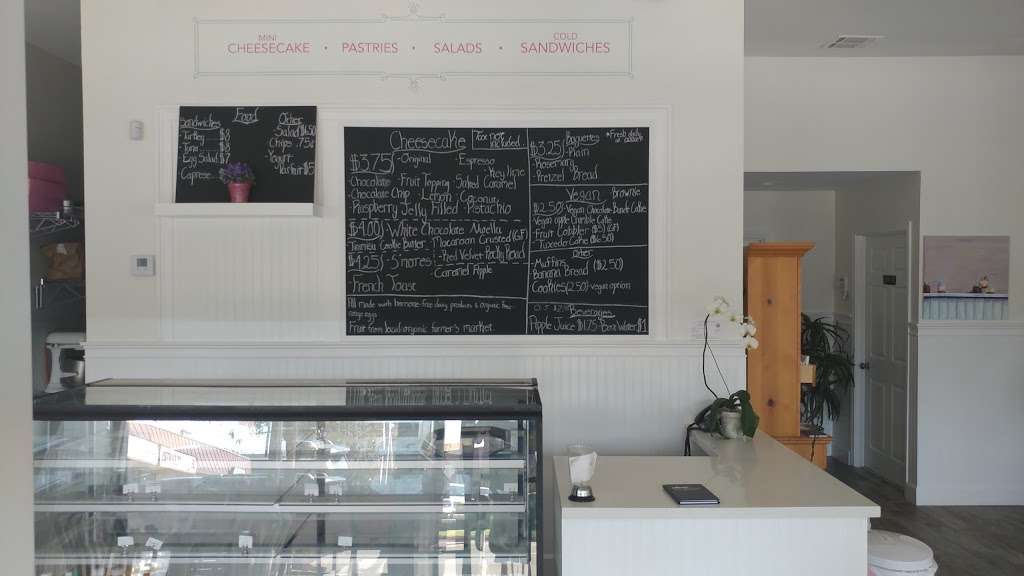 MINI
CHEESECAKE • PASTRIES • SALADS • COLD SANDWICHES
Food
Sandwiches
Turkey $8
Tuna $8
Egg Salad $7
Caprese
Other
Salad $6.50
Chips .75¢
Yogurt
Parfait $5
Cheesecake
Tax not included
$3.75 -Original -Espresso
-Key lime
-Chocolate -Fruit Topping Salted Caramel
-Chocolate Chip Lemon Coconut
-Raspberry Jelly Filled Pistachio
$4.00 White Chocolate Nutella
Cookie Butter Macaroon Crusted (GF)
$4.25 S'mores -Red Velvet Rocky Road
-Caramel Apple
French Toast
All made with hormone-free dairy products & organic free-range eggs
Fruit from local organic farmer's market
Baguettes *Fresh daily
$3.25 -Plain
-Rosemary
-Pretzel Bread
Vegan Brownie
$2.50 Vegan Chocolate Donut Cake
Vegan apple Crumble Cake
-Fruit Cobbler $5 (GF)
Tuxedo Cake ($6.50)
Other
-Muffins
Banana Bread ($2.50)
Cookies (2.50) -vegan option
Beverages
Apple Juice $1.75 -Water $1